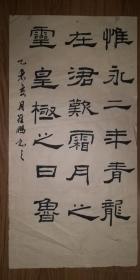 惟永二年青龍
在涒歎霜月之
靈皇極之日魯
乙未